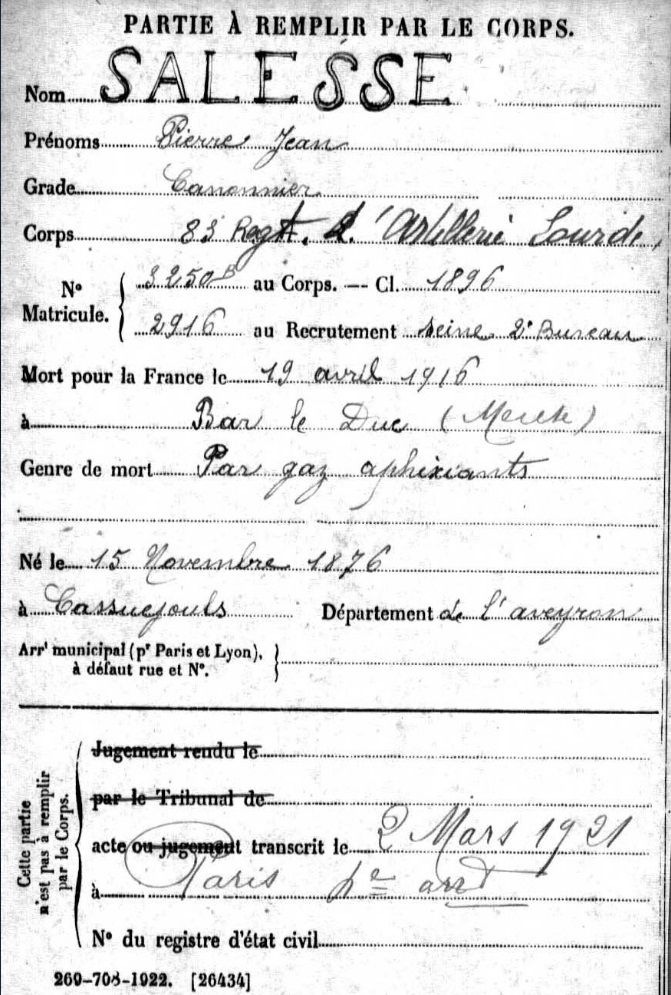 PARTIE À REMPLIR PAR LE CORPS.
Nom SALESSE
Prénoms Pierre Jean
Grade Canonnier
Corps 83 Regt. d'Artillerie Lourde,
N° Matricule. { 3250 B au Corps. — Cl. 1896
2916 au Recrutement Seine 2e Bureau
Mort pour la France le 19 avril 1916
à Bar le Duc (Meuse)
Genre de mort Par gaz aphixiants
Né le 15 Novembre 1876
à Cassuejouls Département de l'aveyron
Arrt municipal (pr Paris et Lyon),
à défaut rue et N°.
Cette partie n'est pas à remplir par le Corps.
Jugement rendu le
par le Tribunal de
acte ou jugement transcrit le 2 Mars 1921
à Paris arrt
N° du registre d'état civil
269-708-1922. [26434]